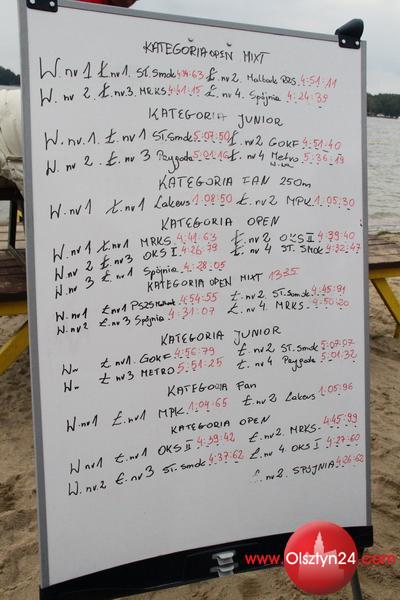 KATEGORIA OPEN MIXT
W. nr 1 Ł. nr 1. ST. Smok 4:44:63 Ł. nr 2. Malbork PZS 4:51:11
W. nr 2. Ł. nr 3. MRKS 4:41:15 Ł. nr 4. Spójnia 4:24:39
KATEGORIA JUNIOR
W. nr 1. Ł. nr 1 ST. Smok 5:07:50 Ł. nr 2 GOKF 4:51:40
W. nr 2. Ł. nr 3 5:01:16 Ł. nr 4 Metro 5:36:19
KATEGORIA FAN 250m
W. nr 1 Ł. nr 1 Lakers 1:08:50 Ł. nr 2. MPK 1:05:30
KATEGORIA OPEN
W. nr 1 Ł. nr 1 MRKS 4:41:63 Ł. nr 2 OKS II 4:39:40
W. nr 2 Ł. nr 3 OKS I 4:26:79 Ł. nr 4 ST. Smok 4:32:47
W. nr 3 Ł. nr 1 Spójnia 4:28:05
KATEGORIA OPEN MIXT 1335
W. nr 1 Ł. nr 1 4:54:55 Ł. nr 2. ST. Smok 4:45:91
W. nr 2 Ł. nr 3 Spójnia 4:31:07 Ł. nr 4. MRKS 4:50:20
KATEGORIA JUNIOR
W. Ł. nr 1. GOKF 4:56:79 Ł. nr 2. ST. Smok 5:07:07
W. Ł. nr 3 METRO 5:51:25 Ł. nr 4 5:01:32
KATEGORIA Fan
W. nr 1 Ł. nr 1. MPK 1:04:65 Ł. nr 2 Lakers 1:05:96
KATEGORIA OPEN
W. nr 1 Ł. nr 1 OKS II 4:39:42 Ł. nr 2. MRKS 4:45:99
W. nr 2 Ł. nr 3 ST. Smok 4:37:62 Ł. nr 4. OKS I 4:27:60
Ł. nr 2. SPÓJNIA 4:26:62
www.Olsztyn24.com